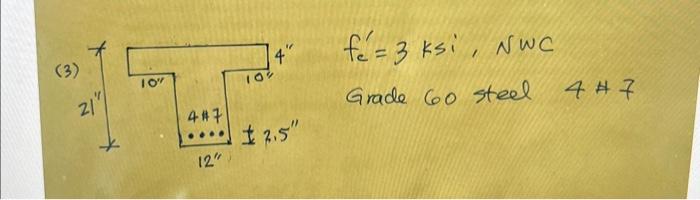 (3)
21"
10"
10"
4"
4#7
2.5"
12"
fc' = 3 ksi, NWC
Grade 60 steel 4 # 7